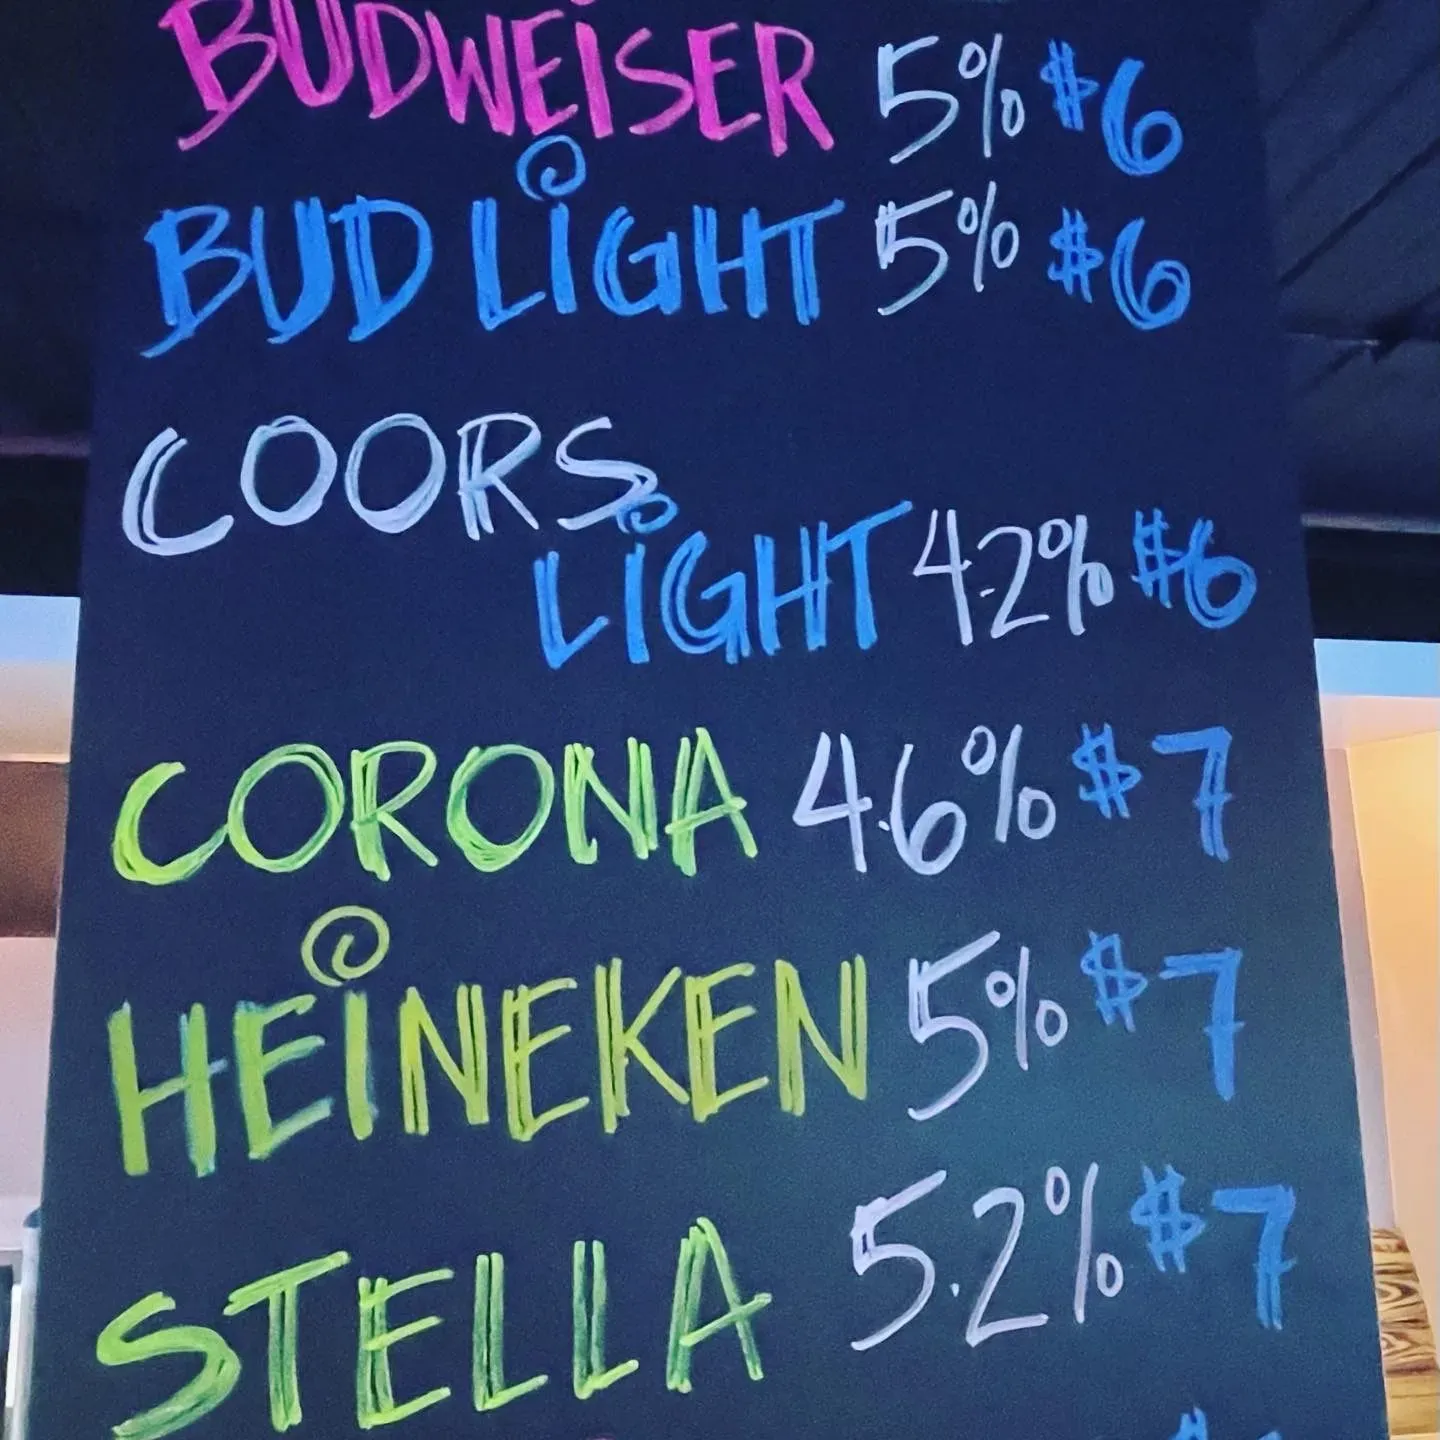 BUDWEISER 5% $6
BUD LIGHT 5% $6
COORS
LIGHT 4.2% $6
CORONA 4.6% $7
HEINEKEN 5% $7
STELLA 5.2% $7